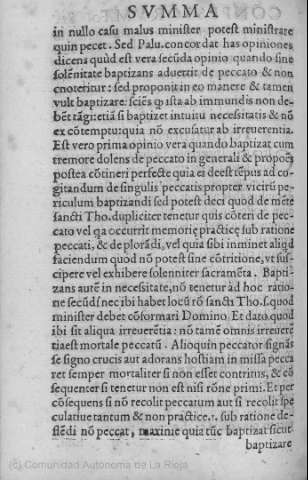 SVMMA
in nullo casu malus minister potest ministrare
quin pecet. Sed Palu. concordat has opiniones
dicens quùd est vera secũda opinio quando sine
solẽnitate baptizans aduertit de peccato & non
cnoteritur: sed proponit in eo manere & tamen
vult baptizare. sciẽs ꝙ ista ab immundis non de-
bẽt tãgi: etiã si baptizet intuitu necessitatis & nõ
ex cõtemptu: quia nõ excusatur ab irreuerentia.
Est vero prima opinio vera quando baptizat cum
tremore dolens de peccato in generali & propõẽs
postea cõtineri perfecte quia ei deest tẽpus ad co-
gitandum de singulis peccatis propter vicinũ pe-
riculum baptizandi sed potest dici quod de mẽte
sancti Tho. dupliciter tenetur quis cõteri de pec-
cato vel qa occurrit memorię practicę sub ratione
peccati, & de plorãdi, vel quia sibi imminet aliqd
faciendum quod nõ potest sine cõtritione, vt sus-
cipere vel exhibere solenniter sacramẽta. Bapti-
zans autẽ in necessitate, nõ tenetur ad hoc ratio-
ne secũdi nec ibi habet locũ rõ sancti Tho. s. quod
minister debet cõformari Domino. Et dato quod
ibi sit aliqua irreuerẽtia: nõ tamẽ omnis irreuerẽ
tia est mortale peccatũ. Alioquin peccator signãs
se signo crucis aut adorans hostiam in missa pecca
ret semper mortaliter si non esset contritus, & cõ
sequenter si tenetur non est nisi rõne primi. Et per
cõsequens si nõ recolit peccatum aut si recolit spe
culatiue tantum & non practice. r. sub ratione de-
flẽdi nõ peccat, maxime quia tũc baptizat sicut
baptizare
(c) Comunidad Autónoma de La Rioja